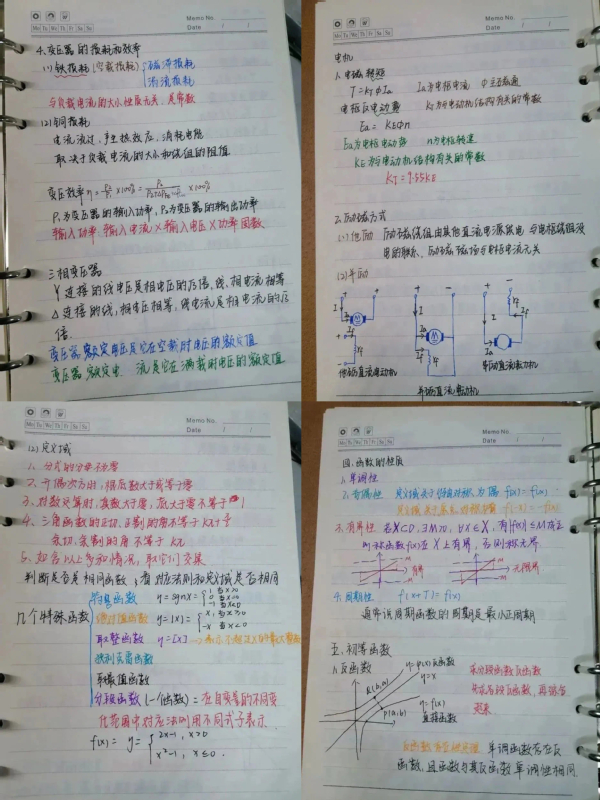 Memo No.
Mo Tu We Th Fr Sa Su
Date / /
4.变压器的损耗和效率
(1)铁损耗(空载损耗) 磁滞损耗
涡流损耗
与负载电流的大小性质无关,是常数
(2)铜损耗
电流流过,产生热效应,消耗电能
取决于负载电流的大小和绕组的阻值
变压效率η= ×100%= ×100%
P₁为变压器的输入功率,P₂为变压器的输出功率
输入功率:输入电流×输入电压×功率因数
三相变压器
Y连接的线电压是相电压的√3倍,线、相电流相等
△连接的线,相电压相等,线电流是相电流的√3
倍.
变压器额定电压是它在空载时电压的额定值
变压器额定电 流是它在满载时电压的额定值
Memo No.
Mo Tu We Th Fr Sa Su
Date / /
电机
1.电磁转矩
T=KTΦIa Ia为电枢电流 Φ主磁通
电枢反电动势 KT为与电动机结构有关的常数
Ea=KEΦn
Ea为电枢电动势 n为电枢转速
KE为与电动机结构有关的常数
KT=9.55KE
2.励磁方式
(1)他励 励磁绕组由其他直流电源供电,与电枢绕组没
电的联系,励磁 与电枢电流无关
(2)并励
I If Ia
他励直流电动机
I Ia If
并励直流电动机
I If Ia
串励直流电动机
Memo No.
Mo Tu We Th Fr Sa Su
Date / /
(2)定义域
1、分式的分母≠零
2、开偶次方时,根底数大于或等于零
3、对数运算时,真数大于零,底大于零不等于1
4、三角函数的正切,正割的角不等于kπ+
余切,余割的角不等于kπ
5、包含以上多种情况,取它们交集
判断是否是相同函数:看对应法则和定义域是否相同
几个特殊函数
符号函数 y=sgnx= 1,当x>0 0,当x=0 -1,当x<0
绝对值函数 y=|x|= x,当x≥0 -x,当x<0
取整函数 y=[x]→表示不超过X的最大整数
狄利克雷函数
取最值函数
分段函数(一个函数)=在自变量的不同变
化范围中对应法则用不同式子表示.
f(x)= y= 2x-1,x>0 x²-1,x≤0.
Memo No.
Mo Tu We Th Fr Sa Su
Date / /
四.函数的性质
1.单调性
2.奇偶性 定义域关于 对称为偶 f(x)=f(-x)
定义域关于 对称 f(-x)=-f(x)
3.有界性 若X⊂D,∃M>0,∀x∈X,有|f(x)|≤M成立
则称函数f(x)在X上有界,否则称无界
M 有界 -M M 无限界 -M
4.周期性 f(x+T)=f(x)
通常说周期函数的周期是最小正周期
五.初等函数
1.反函数 y=φ(x)反函数
y=x
Q(b,a)
P(a,b) y=f(x)
直接函数
求分段函数反函数
先求各段反函数,再综合
起来.
反函数存在性定理 单调函数必存在反
函数,且函数与其反函数单调性相同